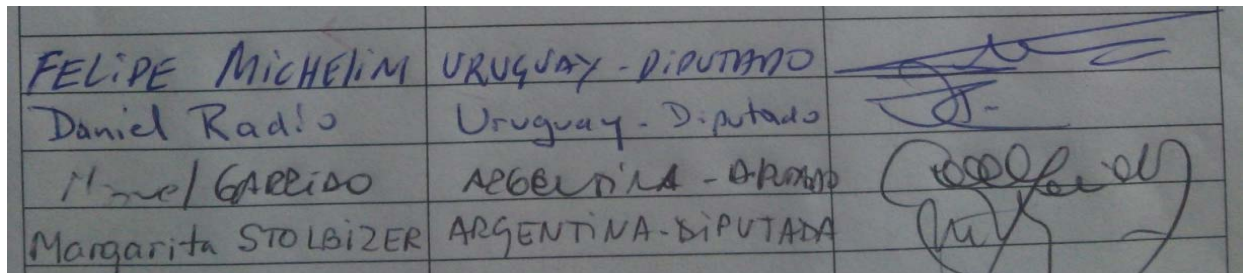 FELiPE MicHELiNi URUGUAY - DiPUTADO
Daniel Radío Uruguay - Diputado
Manuel GARRiDO ARGENTiNA - DiPUTADO
Margarita STOLBiZER ARGENTiNA - DiPUTADA